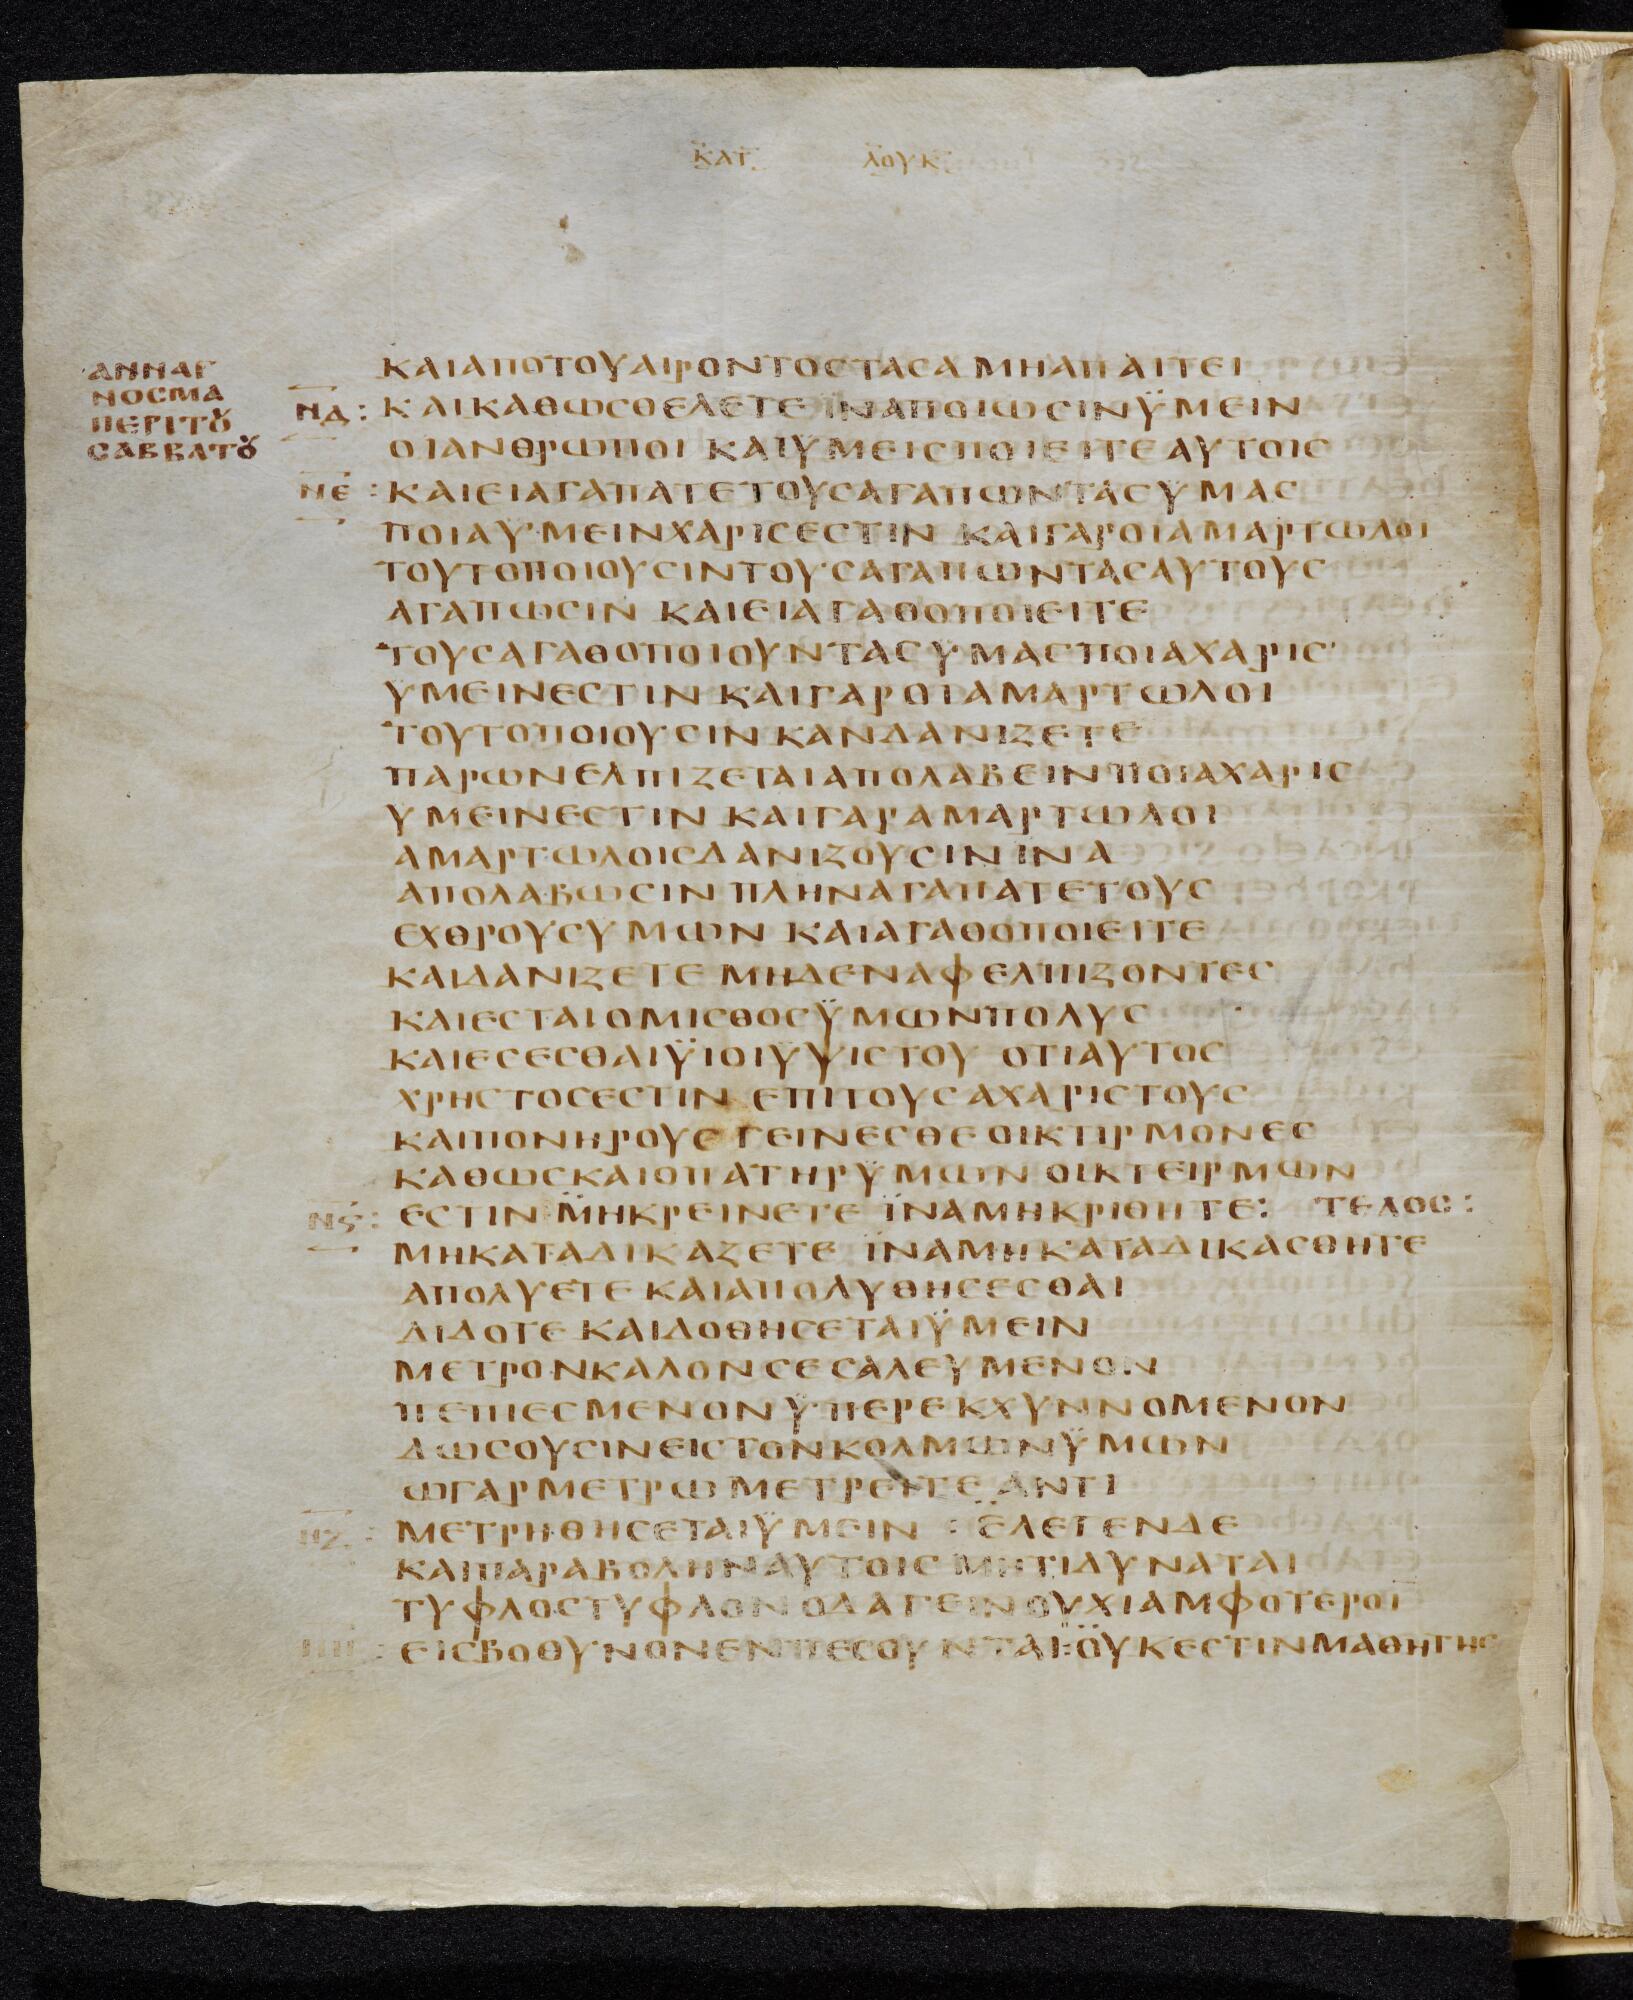 ΚΑΤ ΛΟΥΚ
ΑΝΝΑΓ
ΝΟΣΜΑ
ΠΕΡΙΤȢ
ΣΑΒΒΑΤȢ
ΚΑΙΑΠΟΤΟΥΑΙΡΟΝΤΟΣΤΑΣΑ ΜΗΑΠΑΙΤΕΙ
ΝΔ: ΚΑΙΚΑΘΩΣΘΕΛΕΤΕ ΙΝΑΠΟΙΩΣΙΝΫΜΕΙΝ
ΟΙΑΝΘΡΩΠΟΙ ΚΑΙΫΜΕΙΣΠΟΙΕΙΤΕΑΥΤΟΙΣ
ΝΕ: ΚΑΙΕΙΑΓΑΠΑΤΕΤΟΥΣΑΓΑΠΩΝΤΑΣΥΜΑΣ
ΠΟΙΑΥΜΕΙΝΧΑΡΙΣΕΣΤΙΝ ΚΑΙΓΑΡΟΙΑΜΑΡΤΩΛΟΙ
ΤΟΥΤΟΠΟΙΟΥΣΙΝΤΟΥΣΑΓΑΠΩΝΤΑΣΑΥΤΟΥΣ
ΑΓΑΠΩΣΙΝ ΚΑΙΕΙΑΓΑΘΟΠΟΙΕΙΤΕ
ΤΟΥΣΑΓΑΘΟΠΟΙΟΥΝΤΑΣΥΜΑΣΠΟΙΑΧΑΡΙΣ
ΥΜΕΙΝΕΣΤΙΝ ΚΑΙΓΑΡΟΙΑΜΑΡΤΩΛΟΙ
ΤΟΥΤΟΠΟΙΟΥΣΙΝ ΚΑΝΔΑΝΙΖΕΤΕ
ΠΑΡΩΝΕΛΠΙΖΕΤΑΙΑΠΟΛΑΒΕΙΝΠΟΙΑΧΑΡΙΣ
ΥΜΕΙΝΕΣΤΙΝ ΚΑΙΓΑΡΑΜΑΡΤΩΛΟΙ
ΑΜΑΡΤΩΛΟΙΣΔΑΝΙΖΟΥΣΙΝ ΙΝΑ
ΑΠΟΛΑΒΩΣΙΝ ΠΛΗΝΑΓΑΠΑΤΕΤΟΥΣ
ΕΧΘΡΟΥΣΥΜΩΝ ΚΑΙΑΓΑΘΟΠΟΙΕΙΤΕ
ΚΑΙΔΑΝΙΖΕΤΕ ΜΗΔΕΝΑΦΕΛΠΙΖΟΝΤΕΣ
ΚΑΙΕΣΤΑΙΟΜΙΣΘΟΣΫΜΩΝΠΟΛΥΣ
ΚΑΙΕΣΕΣΘΑΙΫΙΟΙΫΨΙΣΤΟΥ ΟΤΙΑΥΤΟΣ
ΧΡΗΣΤΟΣΕΣΤΙΝ ΕΠΙΤΟΥΣΑΧΑΡΙΣΤΟΥΣ
ΚΑΙΠΟΝΗΡΟΥΣ ΓΕΙΝΕΣΘΕΟΙΚΤΙΡΜΟΝΕΣ
ΚΑΘΩΣΚΑΙΟΠΑΤΗΡΫΜΩΝ ΟΙΚΤΕΙΡΜΩΝ
ΝϚ: ΕΣΤΙΝ ΜΗΚΡΕΙΝΕΤΕ ΪΝΑΜΗΚΡΙΘΗΤΕ: ΤΕΛΟΣ:
ΜΗΚΑΤΑΔΙΚΑΖΕΤΕ ΪΝΑΜΗΚΑΤΑΔΙΚΑΣΘΗΤΕ
ΑΠΟΛΥΕΤΕ ΚΑΙΑΠΟΛΥΘΗΣΕΣΘΑΙ
ΔΙΔΟΤΕ ΚΑΙΔΟΘΗΣΕΤΑΙΫΜΕΙΝ
ΜΕΤΡΟΝΚΑΛΟΝΣΕΣΑΛΕΥΜΕΝΟΝ
ΠΕΠΙΕΣΜΕΝΟΝΫΠΕΡΕΚΧΥΝΝΟΜΕΝΟΝ
ΔΩΣΟΥΣΙΝΕΙΣΤΟΝΚΟΛΜΩΝΫΜΩΝ
ΩΓΑΡΜΕΤΡΩΜΕΤΡΕΙΤΕ ΑΝΤΙ
ΝΖ: ΜΕΤΡΗΘΗΣΕΤΑΙΫΜΕΙΝ : ΕΛΕΓΕΝΔΕ
ΚΑΙΠΑΡΑΒΟΛΗΝΑΥΤΟΙΣ ΜΗΤΙΔΥΝΑΤΑΙ
ΤΥΦΛΟΣΤΥΦΛΟΝΟΔΑΓΕΙΝΟΥΧΙΑΜΦΟΤΕΡΟΙ
ΝΗ: ΕΙΣΒΟΘΥΝΟΝΕΝΠΕΣΟΥΝΤΑΙ:ΟΥΚΕΣΤΙΝΜΑΘΗΤΗΣ